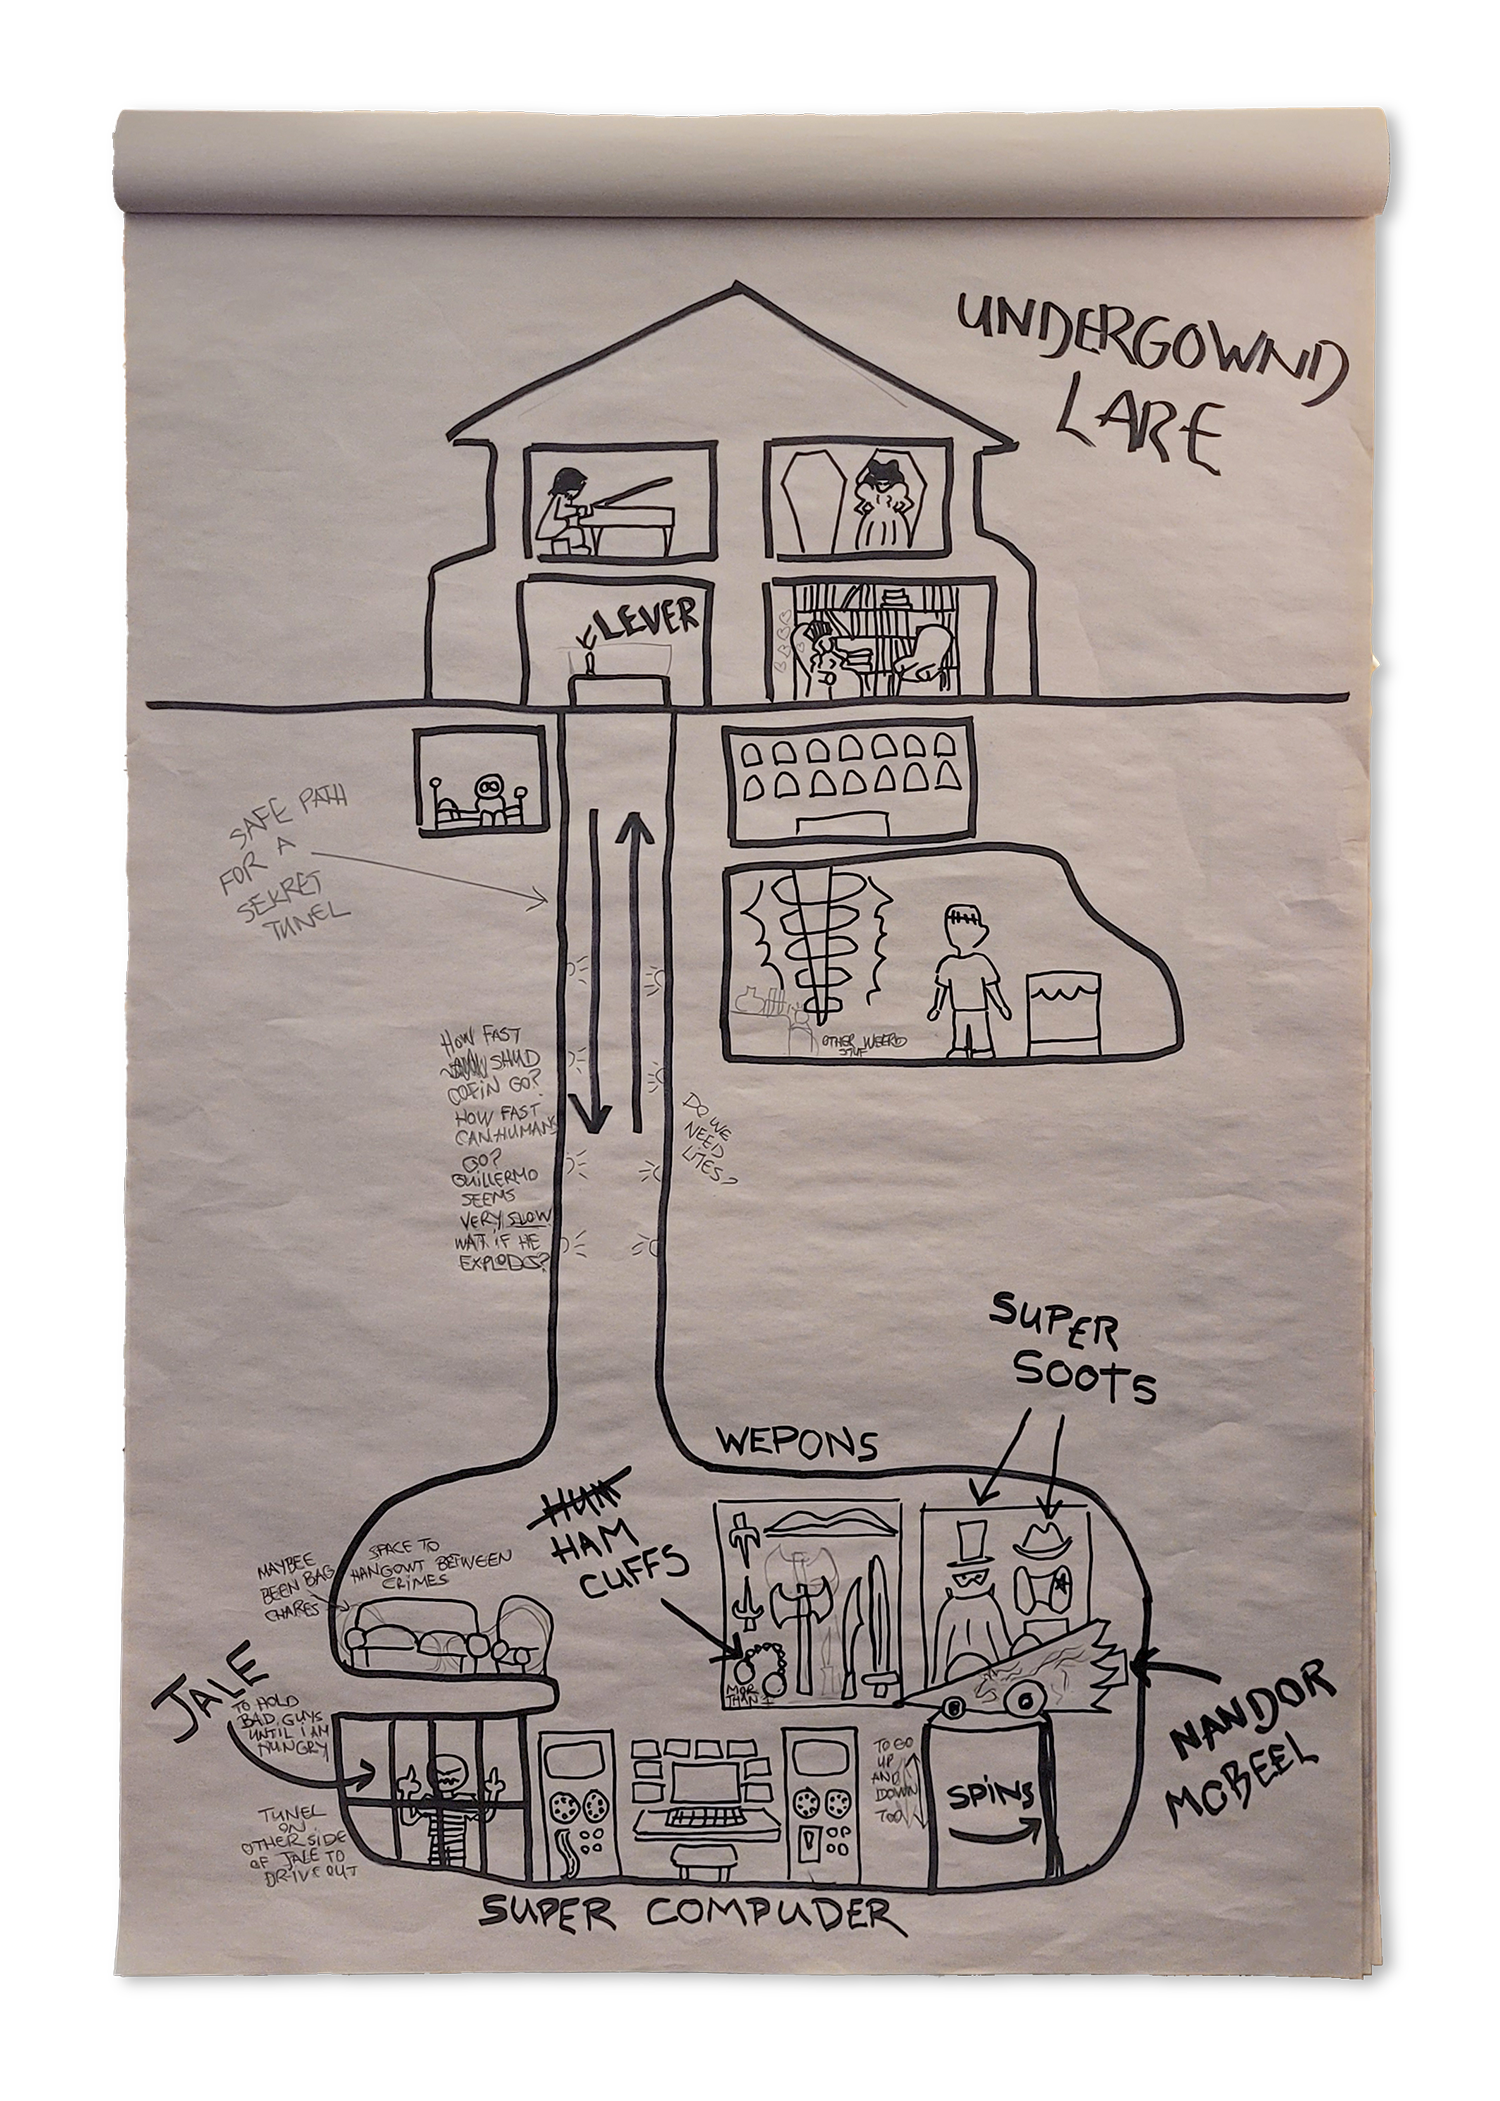 UNDERGOWND
LARE
LEVER
SAFE PATH
FOR A
SEKRET
TUNEL
OTHER WEERD
STUF
HOW FAST
SHUD
COFIN GO?
HOW FAST
CAN HUMANS
GO?
GUILLERMO
SEEMS
VERY SLOW
WAT IF HE
EXPLODS?
DO WE
NEED
LITES?
SUPER
SOOTS
WEPONS
HUM
HAM
CUFFS
MOR
THAN 1
SPACE TO
HANGOWT BETWEEN
CRIMES
MAYBEE
BEEN BAG
CHARES
JALE
TO HOLD
BAD GUYS
UNTIL I AM
HUNGRY
TUNEL
ON
OTHER SIDE
OF JALE TO
DRIVE OUT
TO GO
UP
AND
DOWN
TOO
SPINS
NANDOR
MOBEEL
SUPER COMPUDER